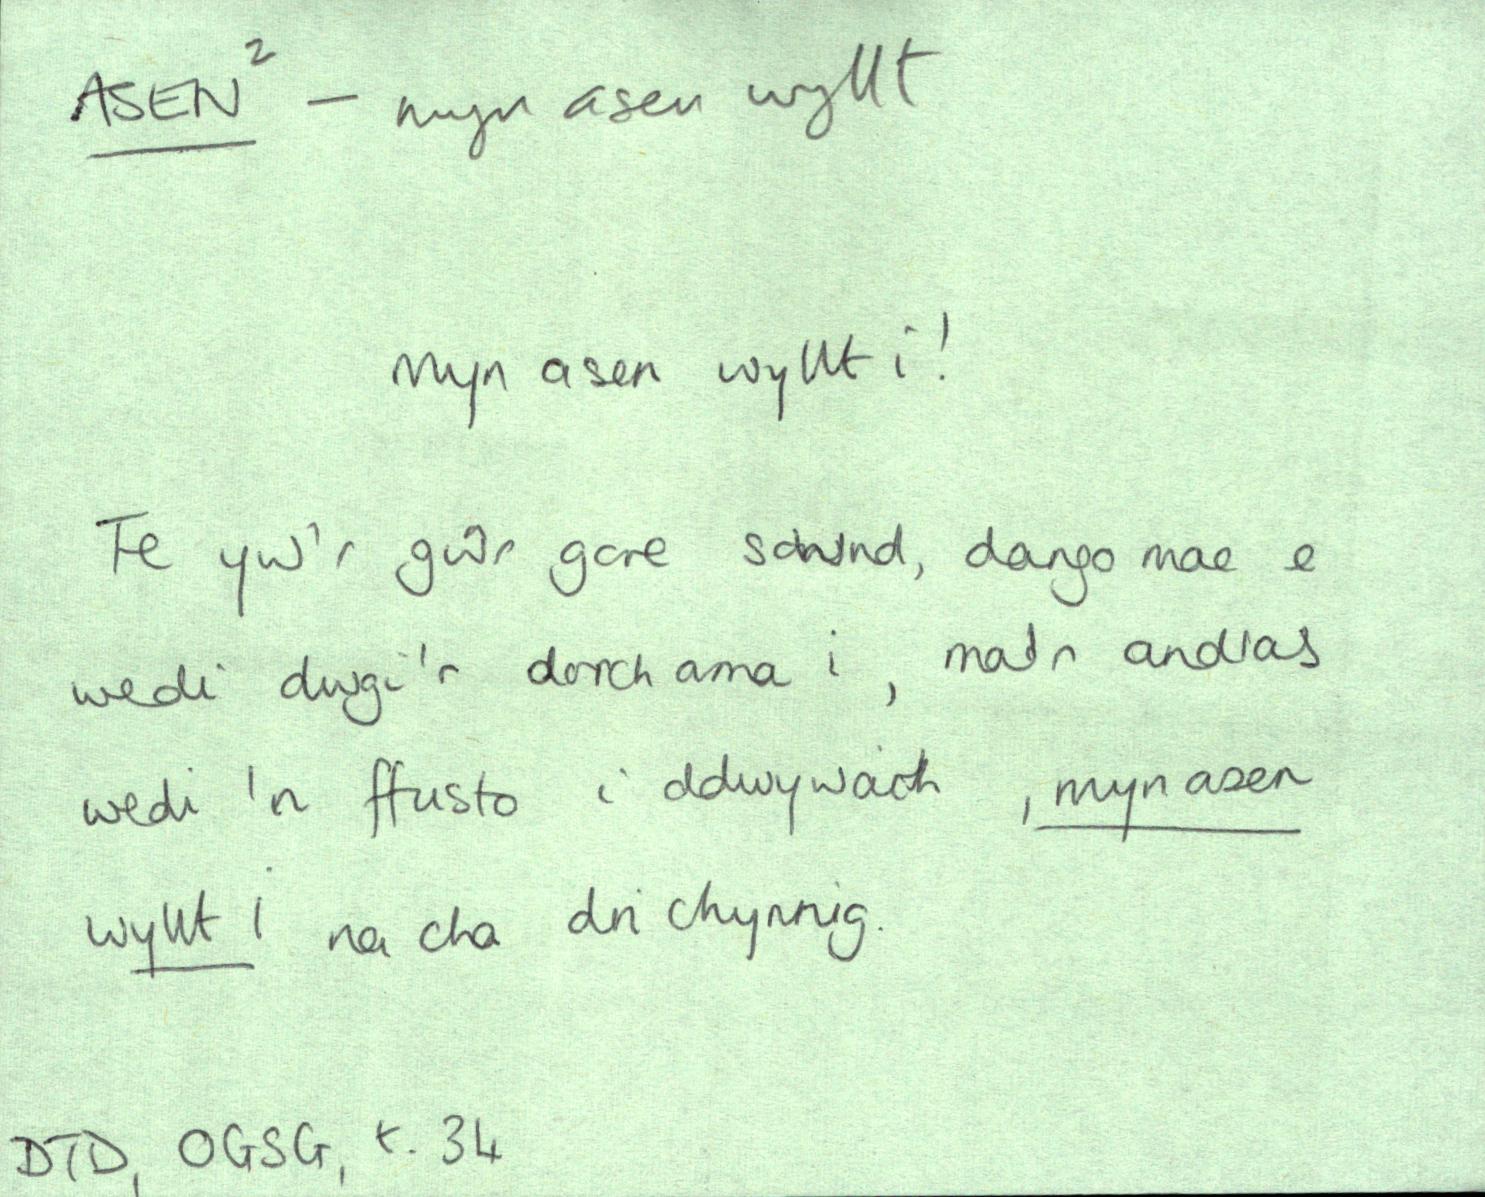 ASEN² – myn asen wyllt
Myn asen wyllt i!
Fe yw'r gŵr gore sownd, dango mae e
wedi dwgi'r dorch ama i, ma'r andras
wedi 'n ffusto i ddwywaith, myn asen
wyllt i na cha dri chynnig.
DTD, OGSG, t. 34